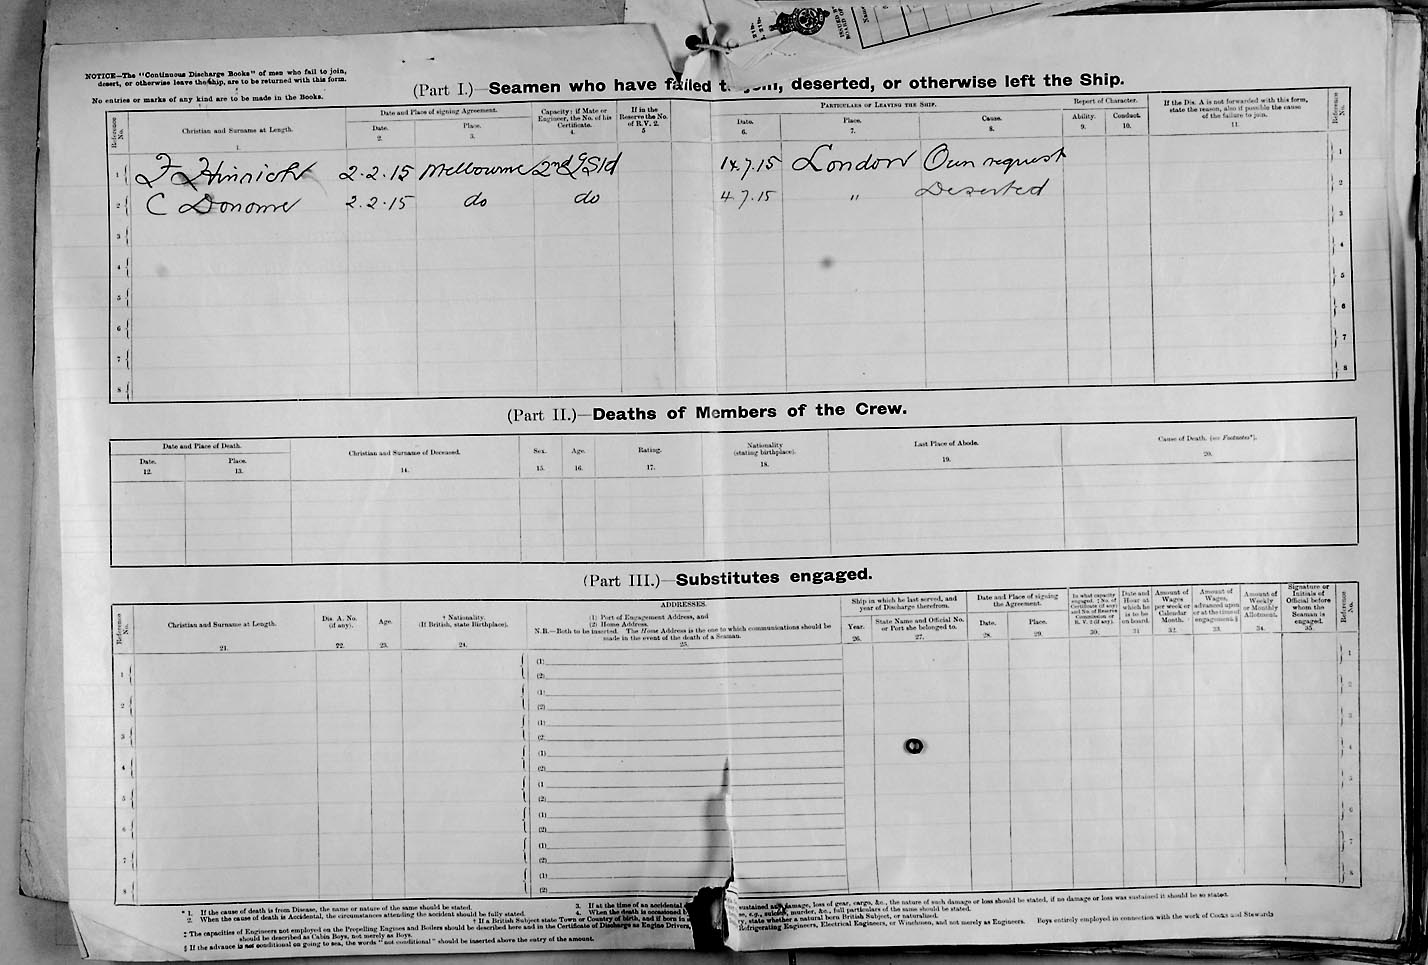 NOTICE—The "Continuous Discharge Books" of men who fail to join,
desert, or otherwise leave the Ship, are to be returned with this form.
No entries or marks of any kind are to be made in the Books.
(Part I.)—Seamen who have failed to join, deserted, or otherwise left the Ship.
Reference No.
Christian and Surname at Length.
1.
Date and Place of signing Agreement.
Date.
2.
Place.
3.
Capacity; if Mate or
Engineer, the No. of his
Certificate.
4.
If in the
Reserve the No.
of R.V. 2.
5
Particulars of Leaving the Ship.
Date.
6.
Place.
7.
Cause.
8.
Report of Character.
Ability.
9.
Conduct.
10.
If the Dis. A is not forwarded with this form,
state the reason, also if possible the cause
of the failure to join.
11.
Reference No.
1 F Hinrichs 2.2.15 Melbourne 2nd 14.7.15 London Own request 1
2 C Donome 2.2.15 do do 4.7.15 " Deserted 2
3 3
4
5 5
6 6
7 7
8 8
(Part II.)—Deaths of Members of the Crew.
Date and Place of Death.
Date.
12.
Place.
13.
Christian and Surname of Deceased.
14.
Sex.
15.
Age.
16.
Rating.
17.
Nationality
(stating birthplace).
18.
Last Place of Abode.
19.
Cause of Death. (see Footnotes*).
20.
(Part III.)—Substitutes engaged.
Reference No.
Christian and Surname at Length.
21.
Dis. A. No.
(if any).
22.
Age.
23.
† Nationality.
(If British, state Birthplace).
24.
ADDRESSES.
(1) Port of Engagement Address, and
(2) Home Address.
N.B.—Both to be inserted. The Home Address is the one to which communications should be
made in the event of the death of a Seaman.
25.
Ship in which he last served, and
year of Discharge therefrom.
Year.
26.
State Name and Official No.
or Port she belonged to.
27.
Date and Place of signing
the Agreement.
Date.
28.
Place.
29.
In what capacity
engaged. ‡ No. of
Certificate (if any)
and No. of Reserve
Commission or
R. V. 2 (if any).
30.
Date and
Hour at
which he
is to be
on board.
31
Amount of
Wages
per week or
Calendar
Month.
32.
Amount of
Wages,
advanced upon
or at the time of
engagement. §
33.
Amount of
Weekly
or Monthly
Allotment.
34.
Signature or
Initials of
Official before
whom the
Seaman is
engaged.
35.
Reference No.
1 (1) 1
(2)
2 (1) 2
(2)
3 (1) 3
(2)
4 (1) 4
(2)
5 (1) 5
(2)
6 (1) 6
(2)
7 (1) 7
(2)
8 (1) 8
(2)
* 1. If the cause of death is from Disease, the name or nature of the same should be stated.
2. When the cause of death is Accidental, the circumstances attending the accident should be fully stated.
3. If at the time of an accidental
sustained any damage, loss of gear, cargo, &c., the nature of such damage or loss should be stated, if no damage or loss was sustained it should be so stated.
4. When the death is occasioned
e.g., suicide, murder, &c., full particulars of the same should be stated.
† If a British Subject state Town or Country of birth, and if born in
state whether a natural born British Subject, or naturalised.
‡ The capacities of Engineers not employed on the Propelling Engines and Boilers should be described here and in the Certificate of Discharge as Engine Drivers,
Refrigerating Engineers, Electrical Engineers, or Winchmen, and not merely as Engineers. Boys entirely employed in connection with the work of Cooks and Stewards
should be described as Cabin Boys, not merely as Boys.
§ If the advance is not conditional on going to sea, the words "not conditional" should be inserted above the entry of the amount.